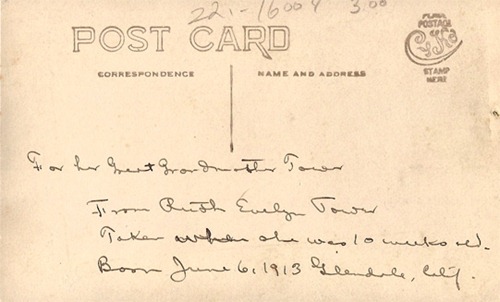 22.-16004 3.00
POST CARD
PLACE
POSTAGE
CYKO
STAMP
HERE
CORRESPONDENCE
NAME AND ADDRESS
For her Great Grandmother Tower
From Ruth Evelyn Tower
Taken when she was 10 weeks old.
Born June 6, 1913 Glendale, Calif.